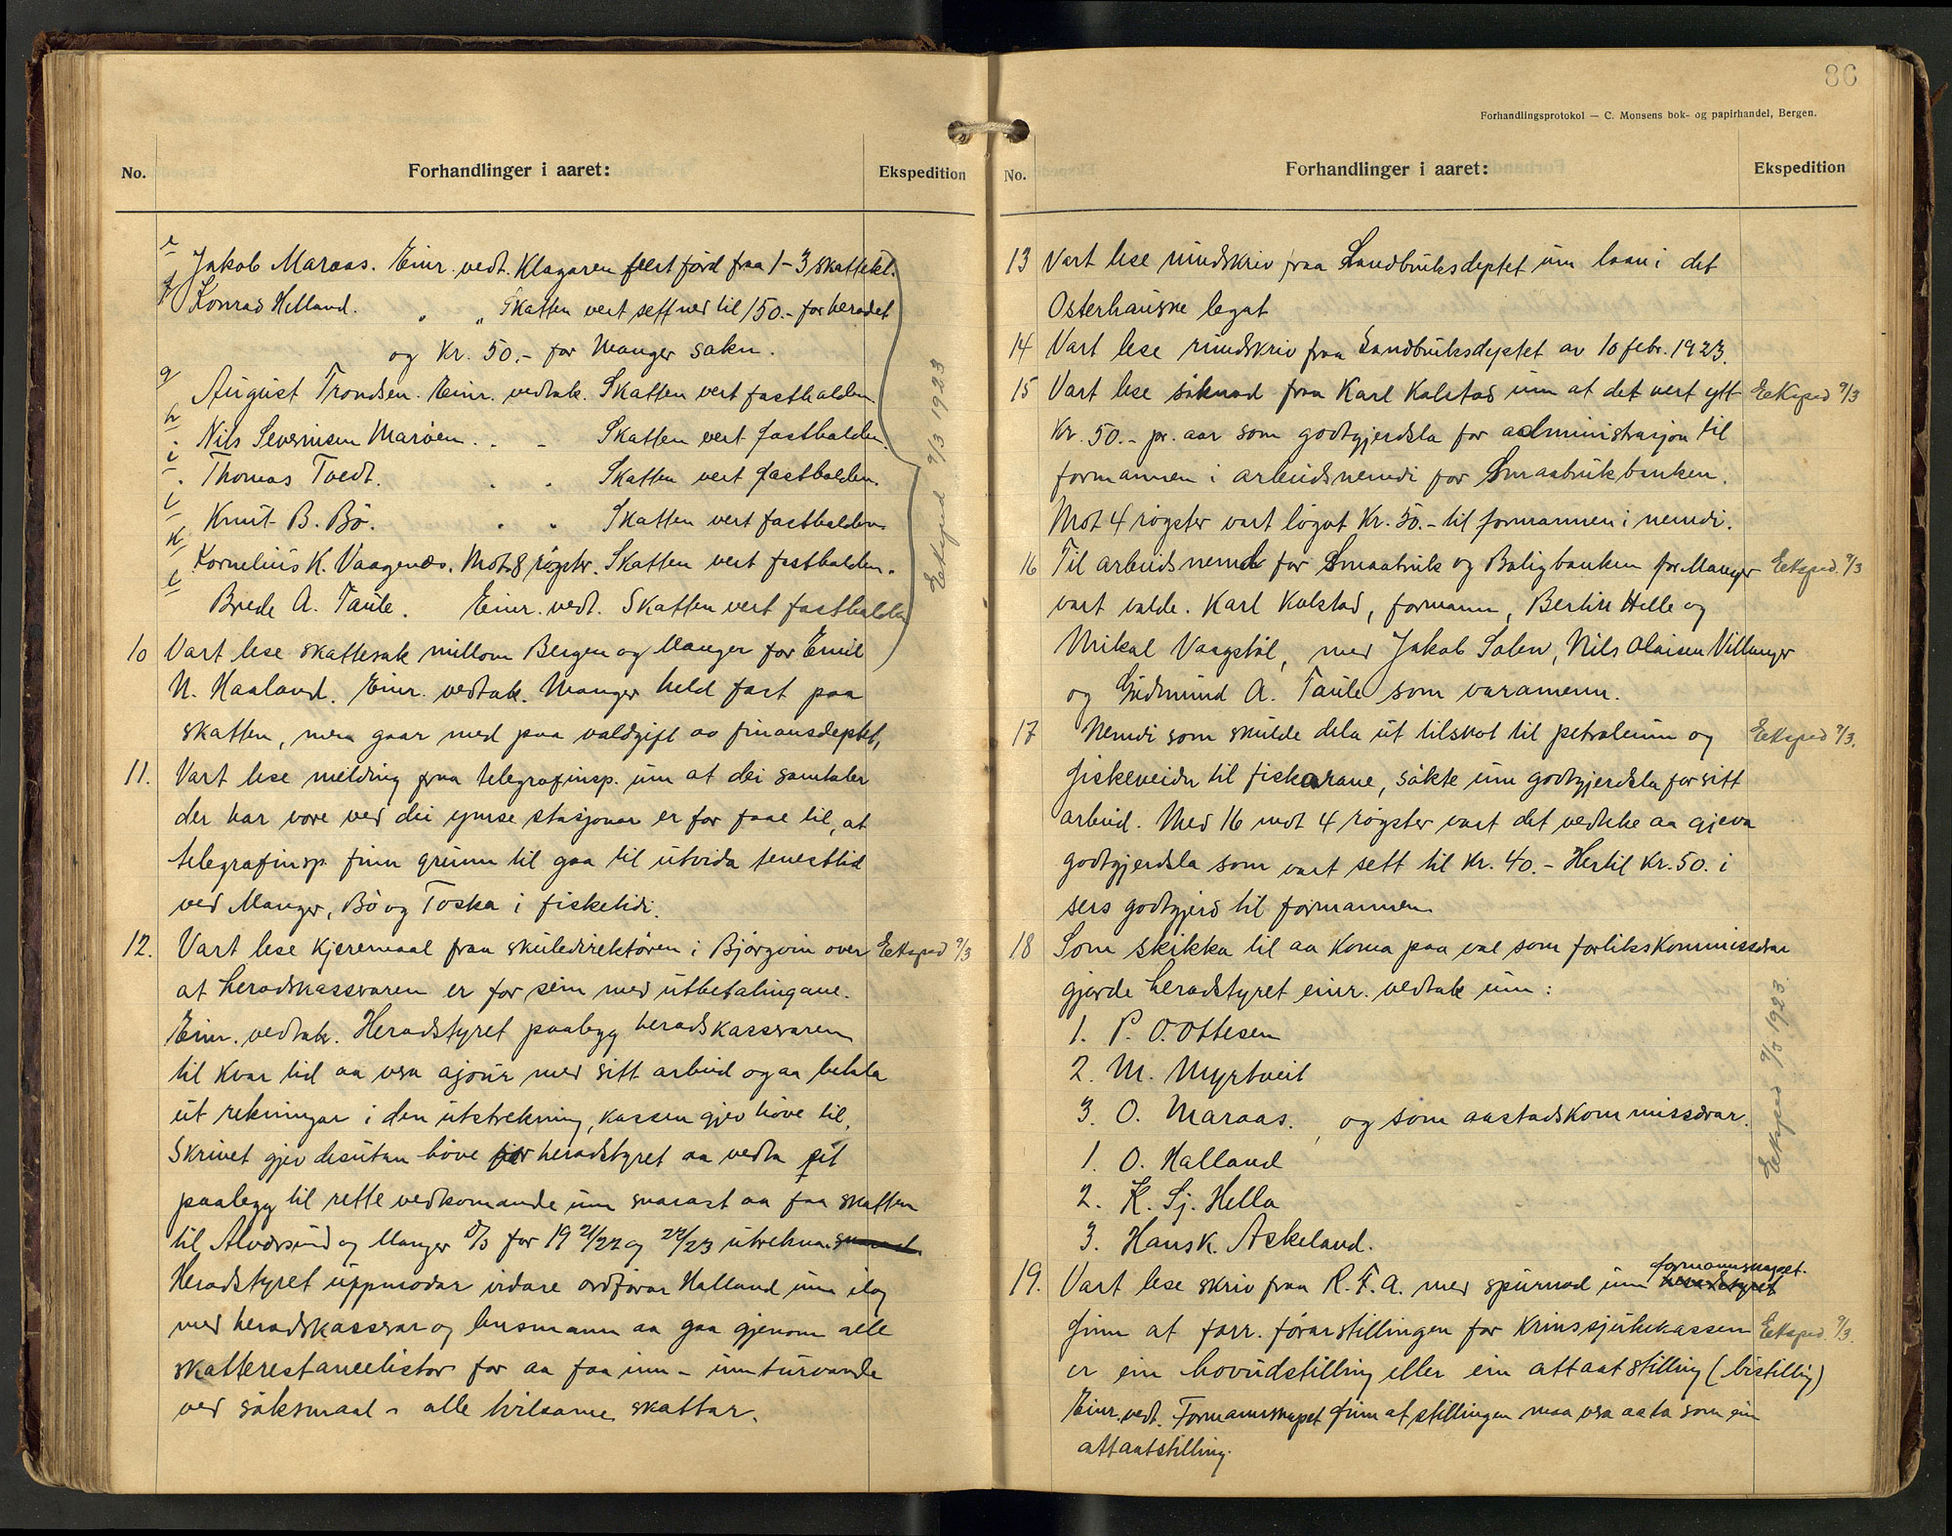 No. Forhandlinger i aaret: Ekspedition
e Jakob Maraas. Einr. vedt. Klagaren flert förd fraa 1-3 skattekl.
f Konrad Helland. " " Skatten vert sett ned til 150.- for heradet
og Kr. 50.- for Manger sokn.
g August Trondsen. Einr. vedtak. Skatten vert fasthalden.
h Nils Severinsen Marøen. " " Skatten vert fasthalden.
i Thomas Tvedt. " " Skatten vert fasthalden.
j Knut B. Bö. " " Skatten vert fasthalden
k Kornelius K. Vaagenes. Mot 8 röyster. Skatten vert fasthalden.
l Brede A. Taule. Einr. vedt. Skatten vert fasthalden
Eeksped 9/3 1923
10 Vart lese skattesak millom Bergen og Manger for Emil
N. Haaland. Einr. vedtak. Manger held fast paa
skatten, men gaar med paa valdgift av finansdeptet,
11. Vart lese melding fraa telegrafinsp. um at dei samtaler
der har vore ved dei ymse stasjonar er for faae til, at
telegrafinsp. finn grunn til gaa til utvida tenesttid
ved Manger, Bö og Toska i fisketidi.
12. Vart lese kjeremaal fraa skuledirektören i Björgvin over Eeksped 9/3
at heradskasseraren er for sein med utbetalingane.
Einr. vedtak. Heradstyret paalegg heradskasseraren
til kvar tid aa vera ajour med sitt arbeid og aa betala
ut rekningar i den utstrekning, kassen gjev höve til.
Skrivet gjev desutan höve for heradstyret aa vedta sit
paalegg til rette vedkomande um snarast aa faa skatten
til Alversund og Manger for 19 21/22 og 22/23 utrekna.
Heradstyret uppmodar vidare ordförar Halland um i lag
med heradskasserar og lensmann aa gaa gjenom alle
skatterestancelistor for aa faa inn - um turvande
ved söksmaal - alle tvilsame skattar.
86
Forhandlingsprotokol — C. Monsens bok- og papirhandel, Bergen.
No. Forhandlinger i aaret: Ekspedition
13 Vart lese rundskriv fraa Landbruksdeptet um laan i det
Osterhausne legat
14 Vart lese rundskriv fraa Landbruksdeptet av 10 febr. 1923.
15 Vart lese söknad fraa Karl Kolstad um at det vert ytt Eeksped 9/3
Kr. 50.- pr. aar som godtgjerdsla for administrasjon til
formannen i arbeidsnemdi for Smaabrukbanken.
Mot 4 röyster vart löyvt Kr. 50.- til formannen i nemdi.
16 Til arbeidsnemd for Smaabruk og Boligbanken for Manger Eeksped. 9/3
vart valde. Karl Kolstad, formann, Bertin Helle og
Mikal Vaagstöl, med Jakob Solen, Nils Olaisen Villanger
og Gudmund A. Taule som varamenn.
17 Nemdi som skulde dela ut tilskot til petroleum og Eeksped 9/3.
fiskeveidn til fiskarane, sökte um godtgjerdsla for sitt
arbeid. Med 16 mot 4 röyster vart det vedteke aa gjeva
godtgjerdsla som vart sett til Kr. 40.- Hertil Kr. 50. i
sers godtgjerd til formannen
18 Som skikka til aa koma paa val som forlikskommissærar
gjorde heradstyret einr. vedtak um:
1. P. O. Ottesen
2. M. Myrtveit
3. O. Maraas. , og som aastadskommissærar.
1. O. Halland
2. K. Sj. Hella
3. Hans K. Askeland.
Eeksped 9/3 1923
19. Vart lese skriv fraa R. F. A. med spurnad um formannskapet. heradstyret
finn at forr. förarstillingen for Krinssjukekassen Eeksped. 9/3.
er ein hovudstilling eller ein attaatstilling (bistilling)
Einr. vedt. Formannskapet finn at stillingen maa vera aa ta som ein
attaatstilling.